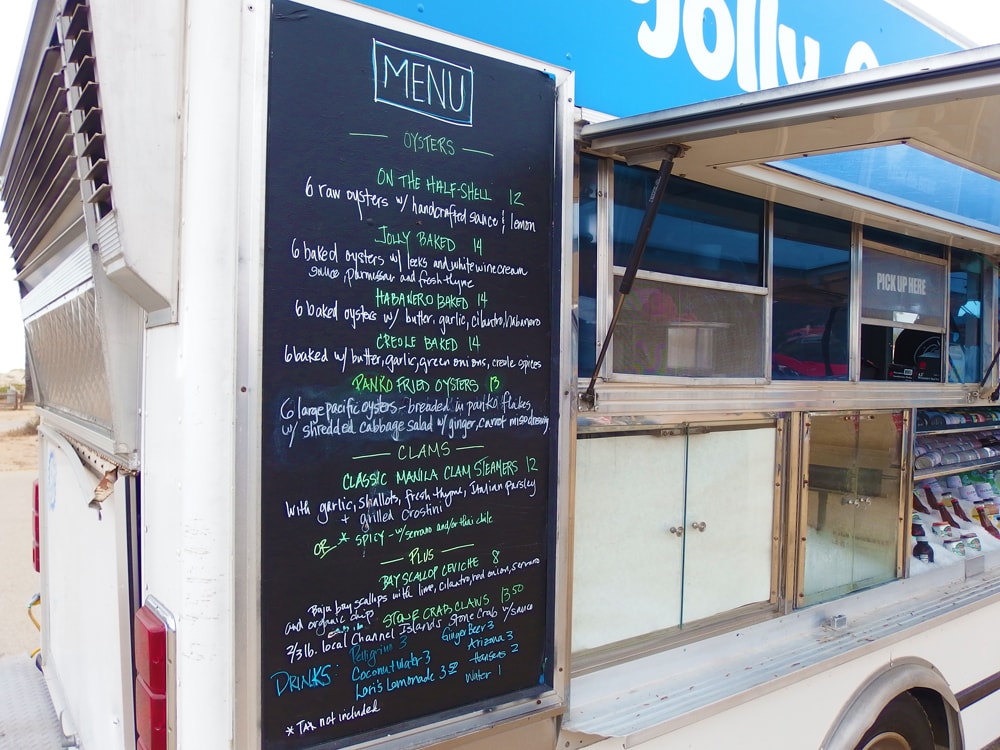 MENU
OYSTERS
ON THE HALF-SHELL 12
6 raw oysters w/ handcrafted sauce & lemon
JOLLY BAKED 14
6 baked oysters w/ leeks and white wine cream
sauce, parmesan and fresh thyme
HABANERO BAKED 14
6 baked oysters w/ butter, garlic, cilantro, habanero
CREOLE BAKED 14
6 baked w/ butter, garlic, green onions, creole spices
PANKO FRIED OYSTERS 13
6 large pacific oysters - breaded in panko flakes
w/ shredded cabbage salad w/ ginger, carrot miso dressing
CLAMS
CLASSIC MANILA CLAM STEAMERS 12
With garlic, shallots, fresh thyme, Italian parsley
+ grilled Crostini
OR * SPICY - w/ serrano and/or thai chile
PLUS
BAY SCALLOP CEVICHE 8
Baja bay scallops with lime, cilantro, red onion, serrano
and organic chip
STONE CRAB CLAWS 13.50
2/3 lb. local Channel Islands Stone Crab w/ sauce
DRINKS:
Pellegrino 3
Coconut Water 3
Lori's Lemonade 3.50
Ginger Beer 3
Arizona 3
Hansens 2
Water 1
* Tax not included
Jolly
PICK UP HERE